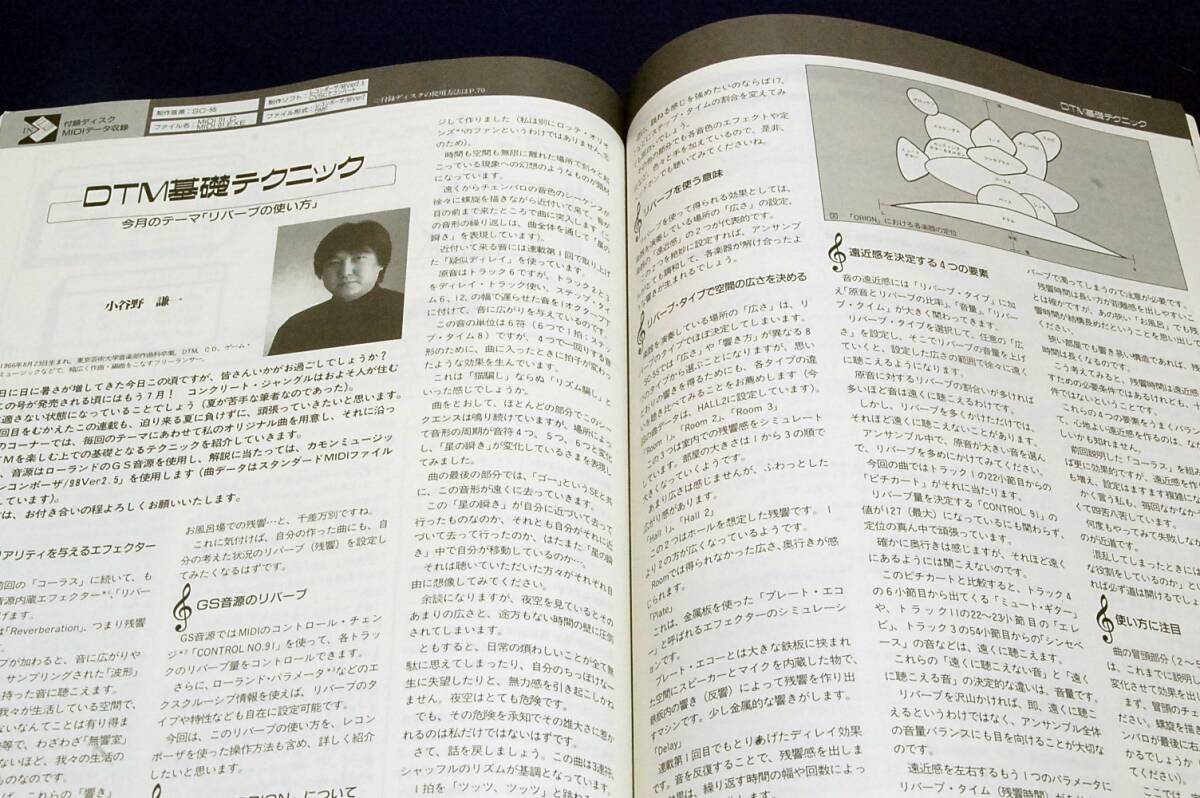 付録ディスク
MIDIデータ収録
制作音源：SC-55
制作ソフト：
ファイル名：MIDI 8].EXE
ファイル形式：
付録ディスクの使用方法はP.70
DTM基礎テクニック
今月のテーマ「リバーブの使い方」
小谷野 謙一
1966年8月23日生まれ。東京芸術大学音楽部作曲科卒業。DTM、CD、ゲーム・
ミュージックなどで、幅広く作曲・編曲をこなすフリーランサー。
日に日に暑さが増してきた今日この頃ですが、皆さんいかがお過ごしでしょうか？
この号が発売される頃にはもう7月！ コンクリート・ジャングルはおよそ人が住む
適さない状態になっていることでしょう（夏が苦手な筆者なのであった）。
回目をむかえたこの連載も、迫り来る夏に負けずに、頑張っていきたいと思います。
のコーナーでは、毎回のテーマにあわせて私のオリジナル曲を用意し、それに沿っ
TMを楽しむ上での基礎となるテクニックを紹介していきます。
音源はローランドのGS音源を使用し、解説に当たっては、カモンミュージッ
レコンポーザ/98Ver2.5」を使用します（曲データはスタンダードMIDIファイル
しています）。
は、お付き合いの程よろしくお願いいたします。
リアリティを与えるエフェクター
前回の「コーラス」に続いて、も
音源内蔵エフェクター、「リバー
げます。
「Reverberation」、つまり残響
ブが加わると、音に広がりや
サンプリングされた「波形」
持った音に聴こえます。
我々が生活している空間で、
ないなんてことは有り得ま
等で、わざわざ「無響室」
ないほど、我々の生活の
ものなのです。
これらの「響き」
お風呂場での残響…と、千差万別ですね。
これに気付けば、自分の作った曲にも、自
分の考えた状況のリバーブ（残響）を設定し
てみたくなるはずです。
GS音源のリバーブ
GS音源ではMIDIのコントロール・チェン
ジ「CONTROL NO.91」を使って、各トラッ
クのリバーブ量をコントロールできます。
さらに、ローランド・パラメータなどのエ
クスクルシブ情報を使えば、リバーブのタ
イプや特性なども自在に設定可能です。
今回は、このリバーブの使い方を、レコン
ポーザを使った操作方法も含め、詳しく紹介
したいと思います。
ORION」について
ジして作りました（私は別にロッテ・オリオ
ンズのファンというわけではありません、念
のため）。
時間も空間も無限に離れた場所で刻々と起
こっている現象への幻想のようなものが題材
になっています。
遠くからチェンバロの音色のシーケンスが
徐々に螺旋を描きながら近付いて来て、音が
目の前まで来たところで曲に突入します（こ
の音形の繰り返しは、曲全体を通して「星の
瞬き」を表現しています）。
近付いて来る音には連載第1回で取り上げ
た「疑似ディレイ」を使っています。
原音はトラック6ですが、トラック2と3
をディレイ・トラック使い、ステップ・タイ
ム6、12、の幅で遅らせた音を1オクターブ下
に付けて、音に広がりを与えているのです。
この音の単位は6符（6つで1拍：ステッ
プ・タイム8）ですが、4つで一回りする音
形のために、曲に入ったときに拍子が変わっ
たような効果を生んでいます。
これは「猫騙し」ならぬ「リズム騙し」と
いった感じでしょうか。
曲をとおして、ほとんどの部分でこのシー
クエンスは鳴り続けていますが、場所によっ
て音形の周期が音符4つ、5つ、6つと変化
し、「星の瞬き」が変化しているさまを表現し
てみました。
曲の最後の部分では、「ゴー」というSEと共
に、この音形が遠くに去っていきます。
この「星の瞬き」が自分に近づいて去って
行ったものなのか、それとも自分がそれに近
づいて去って行ったのか、はたまた「星の瞬
き」中で自分が移動しているのか…。
それは聴いていただいた方々がそれぞれ自
由に想像してみてください。
余談になりますが、夜空を見ているとその
あまりの広さと、途方もない時間の壁に圧倒
されてしまいます。
ともすると、日常の煩わしいことが全て無
駄に思えてしまったり、自分のちっぽけな一
生に失望したりと、無力感を引き起こしかね
ません。夜空はとても危険です。
でも、その危険を承知でその雄大さに惹か
れるのは私だけではないはずです。
さて、話を戻しましょう。この曲は3連符
シャッフルのリズムが基調となっています。
1拍を「ツッツ、ツッツ」と跳ねる
跳ねる感じを強めたいのならば17、
にステップ・タイムの割合を変えてみ
も良いでしょう。
の他の部分でも各音色のエフェクトや定
ど、色々と手を加えているので、是非、
ドホンでも聴いてみてくださいね。
リバーブを使う意味
リバーブを使って得られる効果としては、
を演奏している場所の「広さ」の設定、
の「遠近感」の2つが代表的です。
この2つを絶妙に設定すれば、アンサンブ
とても調和して、各楽器が解け合ったよ
響きが生まれるでしょう。
リバーブ・タイプで空間の広さを決める
を演奏している場所の「広さ」は、リ
のタイプでほぼ決定してしまいます。
SC-55では「広さ」や「響き方」が異なる8
のタイプから選ぶことになりますが、思い
りの響きを得るためにも、各タイプの違
を聴き比べてみることをお薦めします（今
回の曲データは、HALL2に設定しています）。
「Room 1」、「Room 2」、「Room 3」
この3つは室内での残響感をシミュレート
しています。部屋の大きさは1から3の順で
大きくなっていくようです。
あまり広さは感じませんが、ふわっとした
広がり感があります。
「Hall 1」、「Hall 2」
この2つはホールを想定した残響です。1
より2の方が広くなっているようです。
Roomでは得られなかった広さ、奥行きが感
じられます。
「Plate」
これは、金属板を使った「プレート・エコ
ー」と呼ばれるエフェクターのシミュレーシ
ョンです。
プレート・エコーとは大きな鉄板に挟まれ
た空間にスピーカーとマイクを内蔵した物で、
鉄板内の響き（反響）によって残響を作り出
すマシンです。少し金属的な響きがします。
「Delay」
連載第1回目でもとりあげたディレイ効果
です。音を反復することで、残響感を出しま
す。効果は、繰り返す時間の幅や回数によっ
DTM基礎テクニック
図 「ORION」における各楽器の定位
遠近感を決定する4つの要素
音の遠近感には「リバーブ・タイプ」に加
え「原音とリバーブの比率」、「音量」、「リバー
ブ・タイム」が大きく関わってきます。
リバーブ・タイプを選択して、任意の「広
さ」を設定し、そこでリバーブの音量を上げ
ていくと、設定した広さの範囲で徐々に遠く
に聴こえるようになります。
原音に対するリバーブの割合いが多ければ
多いほど音は遠くに聴こえるわけです。
しかし、リバーブを多くかけただけでは、
それほど遠くに聴こえないことがあります。
アンサンブル中で、原音が大きい音を選ん
で、リバーブを多めにかけてみてください。
今回の曲ではトラック1の22小節目からの
「ピチカート」がそれに当たります。
リバーブ量を決定する「CONTROL 91」の
値が127（最大）になっているにも関わらず、
定位の真ん中で頑張っています。
確かに奥行きは感じますが、それほど遠く
にあるようには聞こえないのです。
このピチカートと比較すると、トラック4
の6小節目から出てくる「ミュート・ギター」
や、トラック11の22～23小節目の「エレ
ピ」、トラック3の54小節目からの「シンセベ
ース」の音などは、遠くに聴こえます。
これらの「遠くに聴こえない音」と「遠く
に聴こえる音」の決定的な違いは、音量です。
リバーブを沢山かければ、即、遠くに聴こ
えるというわけではなく、アンサンブル全体
の音量バランスにも目を向けることが大切な
のです。
遠近感を左右するもう1つのパラメータに
リバーブ・タイム（残響時間）が
バーブで濁ってしまうので注意が必要です。
残響時間は長い方が距離感を出しやすいこ
とは確かですが、あの狭い「お風呂」でも残
響時間が結構長めだということを思い出して
ください。
狭い部屋でも響き易い構造であれば、残
時間は長くなるのです。
こう考えてみると、残響時間は遠近感
すための必要条件ではあるけれども、
件ではないということです。
これらの4つの要素をうまくバラン
て、心地よい遠近感を作るのは、な
しいかも知れません。
前回説明した「コーラス」を組み
ば更に効果的ですが、遠近感を作
も増え、設定はますます複雑にな
かく言う私も、毎回なかなか
くて四苦八苦しています。
何度もやってみて失敗しなが
のが近道です。
混乱してしまったときには
な役割をしているのか」と
れば必ず道は開けるでしょ
使い方に注目
曲の冒頭部分（2～
は、これまでに説明し
変化させて効果を出
まず、冒頭のチェ
ださい。螺旋を描
ンバロが最後に左
かるでしょうか
てください）。
ここでは、定